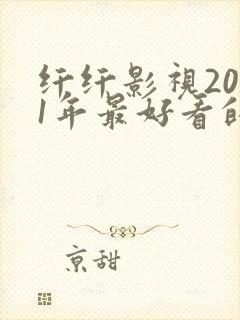 纤纤影視20
1年最好看的
京甜